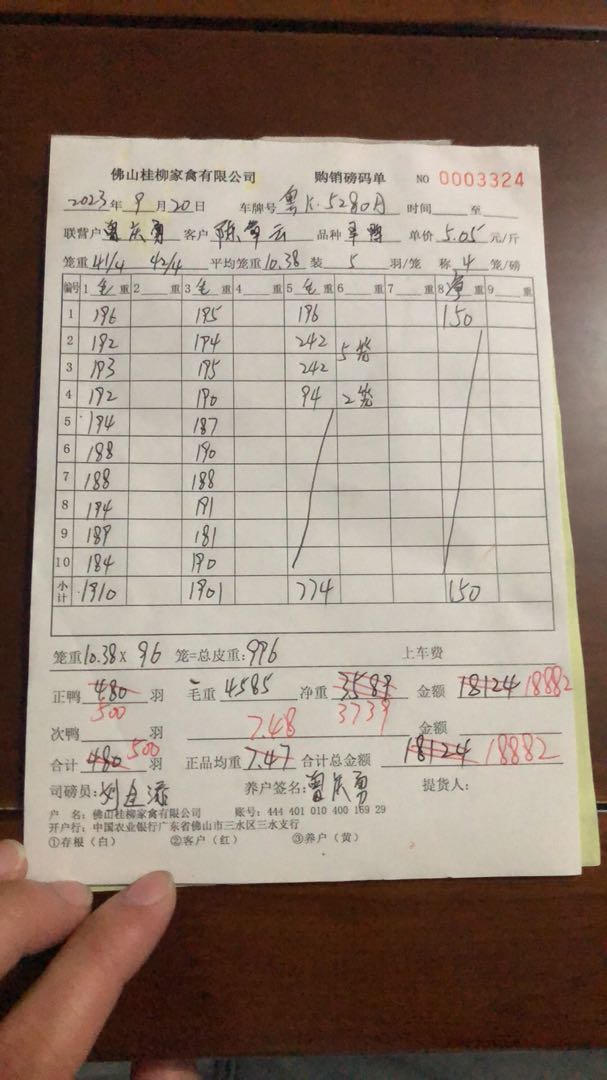 佛山桂柳家禽有限公司 购销磅码单 NO 0003324
2023年 9月20日 车牌号 粤K·5280A 时间 至
联营户 曾庆勇 客户 陈 云 品种 鸭 单价 5.05 元/斤
笼重 41/4 42/4 平均笼重 10.38 装 5 羽/笼 称 4 笼/磅
编号 1 毛 重 2 重 3 毛 重 4 重 5 毛 重 6 重 7 重 8 净 重 9 重
1 196 195 196 150
2 192 194 242 5笼
3 193 195 242
4 192 190 94 2笼
5 194 187
6 188 190
7 188 188
8 194 191
9 189 181
10 184 190
小计 1910 1901 774 150
笼重 10.38 × 96 笼=总皮重: 996 上车费
正鸭 480 羽 毛重 4585 净重 3589 金额 18124 18882
500 3739
次鸭 羽 7.48 金额
合计 480 500 羽 正品均重 7.47 合计总金额 18124 18882
司磅员: 养户签名: 曾庆勇 提货人:
户 名: 佛山桂柳家禽有限公司 账号: 444 401 010 400 169 29
开户行: 中国农业银行广东省佛山市三水区三水支行
①存根(白) ②客户(红) ③养户(黄)